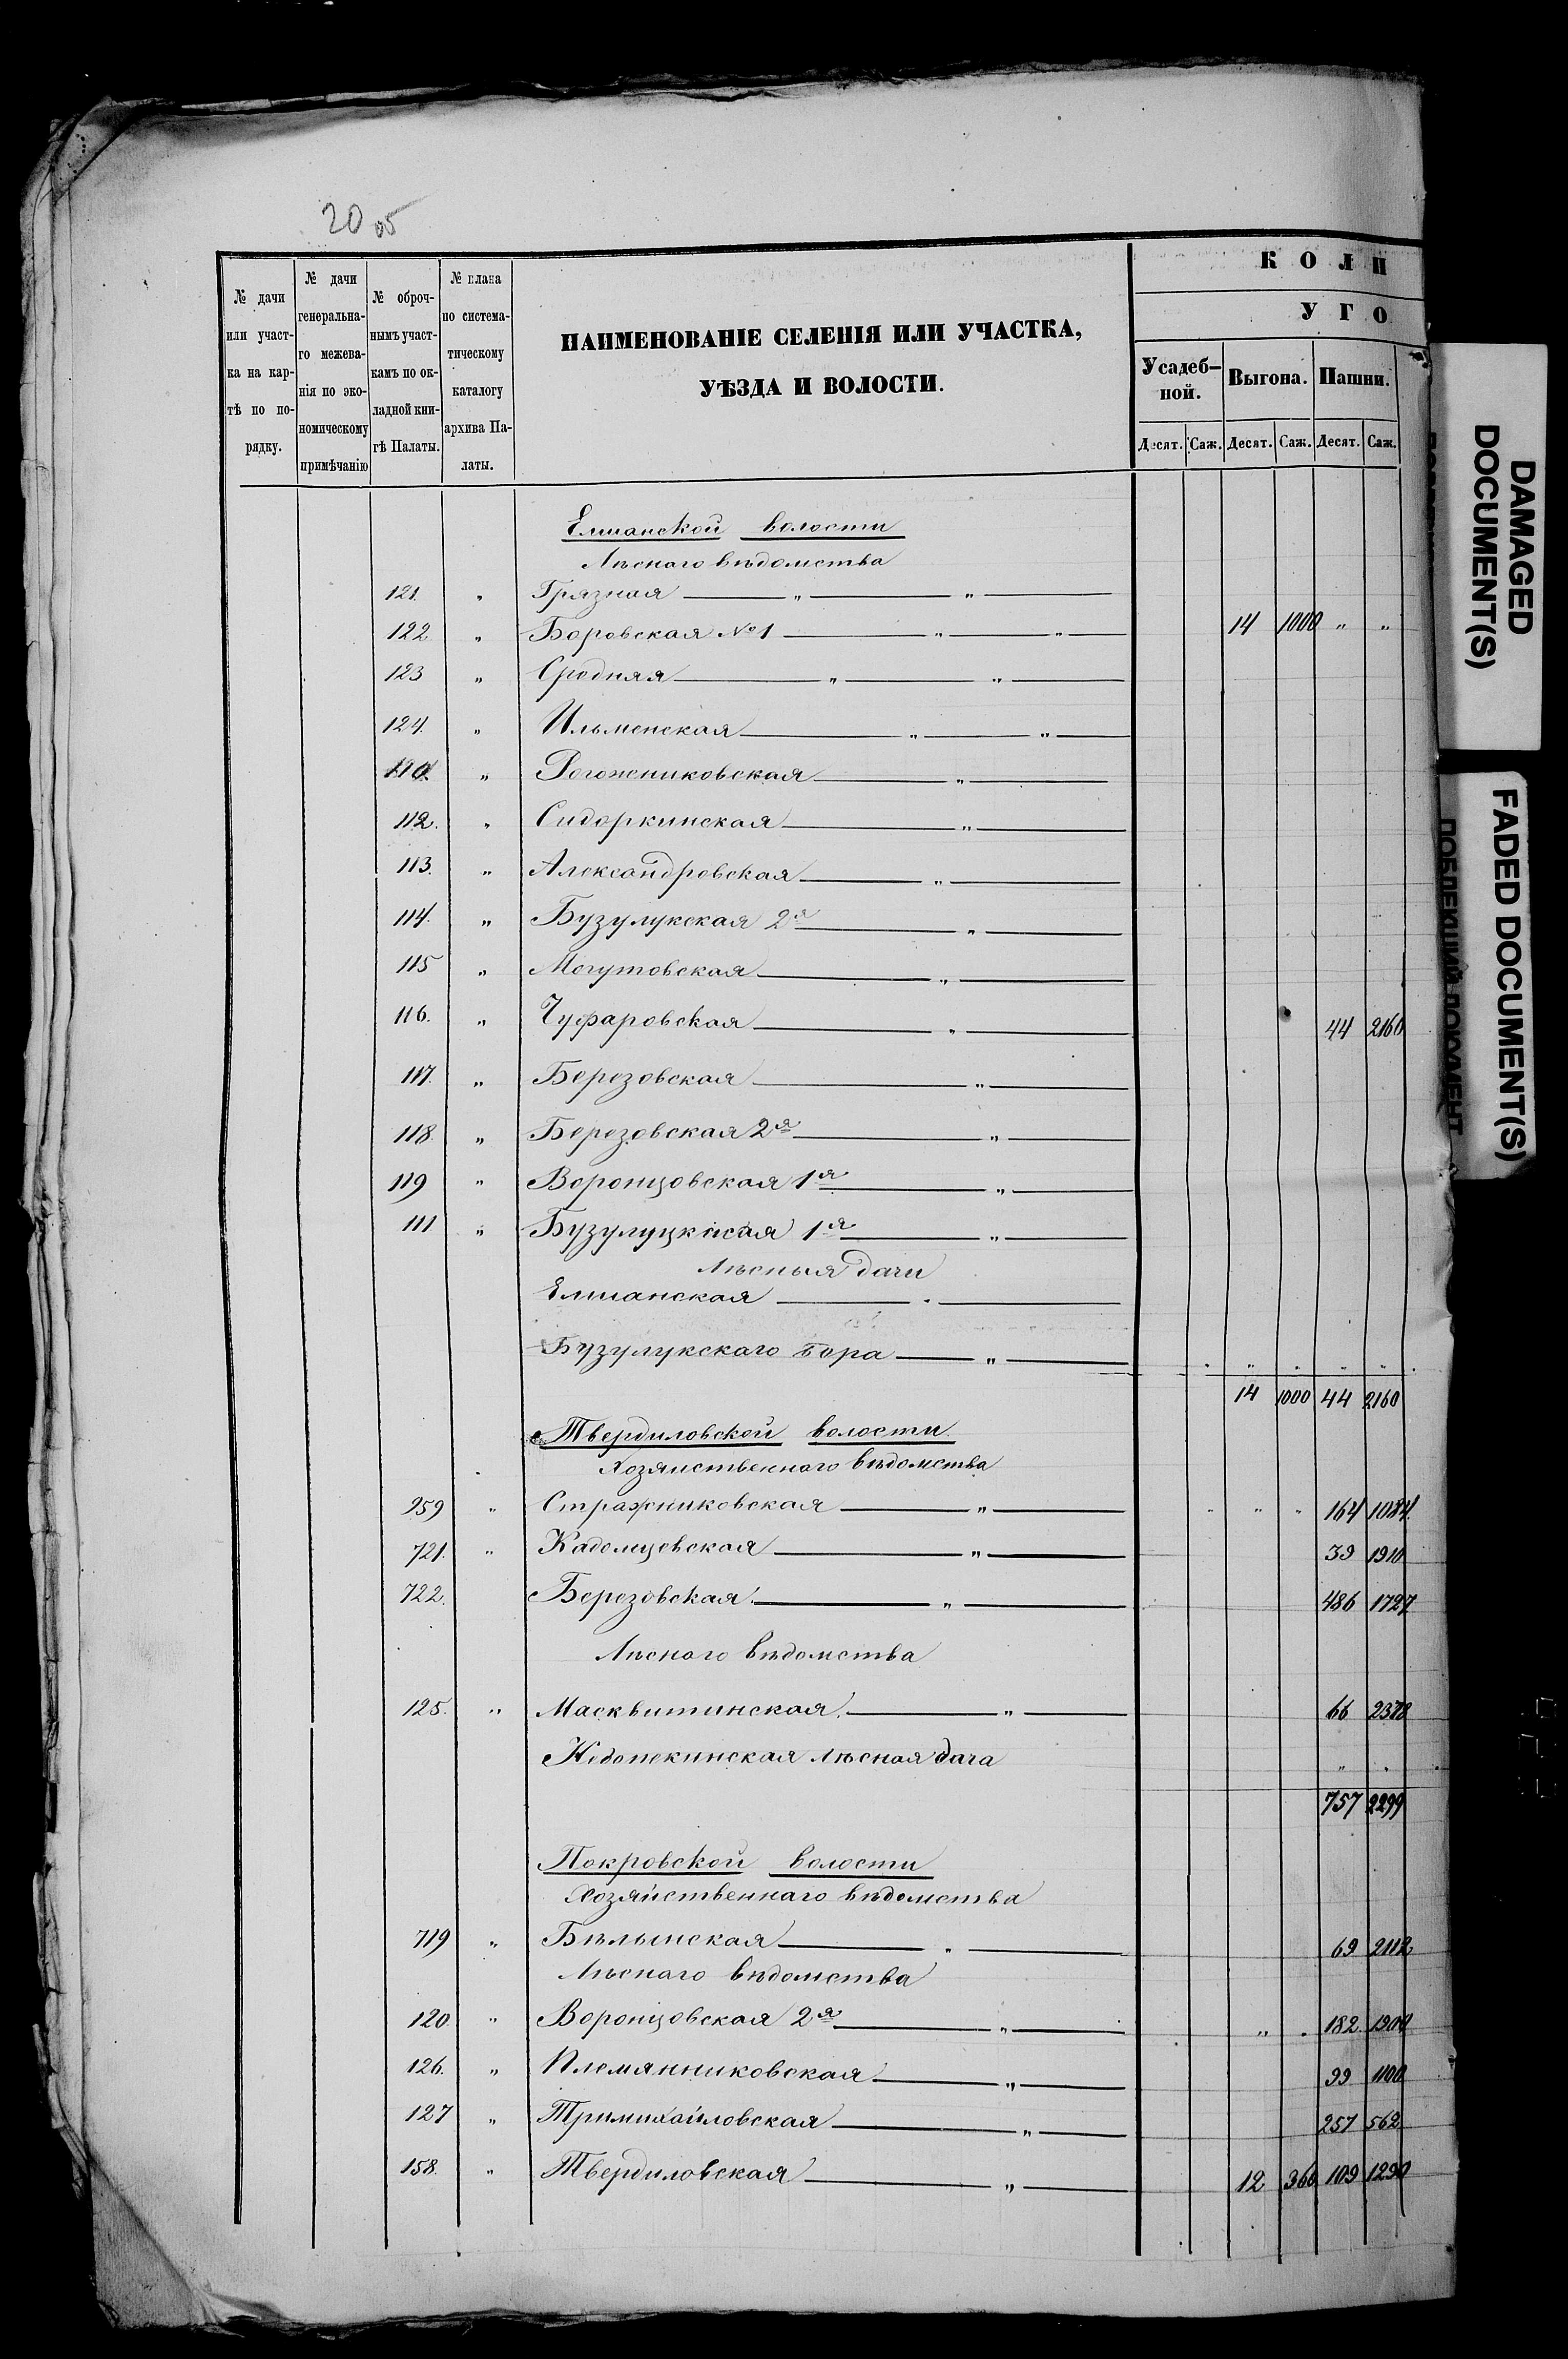 20 об
№ дачи или участ-ка на кар-тѣ по по-рядку.
№ дачи генеральна-го межева-нія по эко-номическому примѣчанію
№ оброч-нымъ участ-камъ по ок-ладной кни-гѣ Палаты.
№ плана по система-тическому каталогу архива Па-латы.
НАИМЕНОВАНІЕ СЕЛЕНІЯ ИЛИ УЧАСТКА,
УѢЗДА И ВОЛОСТИ.
КОЛИ
УГО
Усадеб-ной. Выгона. Пашни.
Десят. Саж. Десят. Саж. Десят. Саж.
Елшанской волости
Лѣснаго вѣдомства
121. " Грязная " "
122 " Боровская №1 " " 14 1000 " "
123 " Средняя " "
124. " Ильменская " "
110. " Рогожниковская "
112. " Сидоркинская "
113. " Александровская "
114. " Бузулукская 2я "
115 " Могутовская "
116. " Чуфаровская " 44 2160
117. " Березовская "
118. " Березовская 2я "
119 " Воронцовская 1я "
111 " Бузулуцкская 1я "
Лѣсныя дачи
Елшанская "
Бузулукскаго бора " " " " " "
14 1000 44 2160
Твердиловской волости
Хозяиственнаго вѣдомства
259 " Стражниковская " " " " 164 1084.
721. " Кадомцевская " 39 1910
722. Березовская " 486 1727
Лѣснаго вѣдомства
125. " Масквитинская " 66 2378
Недопекинская лѣсная дача " "
757 2299
Покровской волости
Хозяйственнаго вѣдомства
719 " Бѣлынская " 69 2112
Лѣснаго вѣдомства
120 " Воронцовская 2я " " " 182 1900
126. " Племянниковская " 99 1100
127 " Тримихайловская " 257 562
158. " Твердиловская " 12 360 109 1290
DAMAGED
DOCUMENT(S)
FADED DOCUMENT(S)